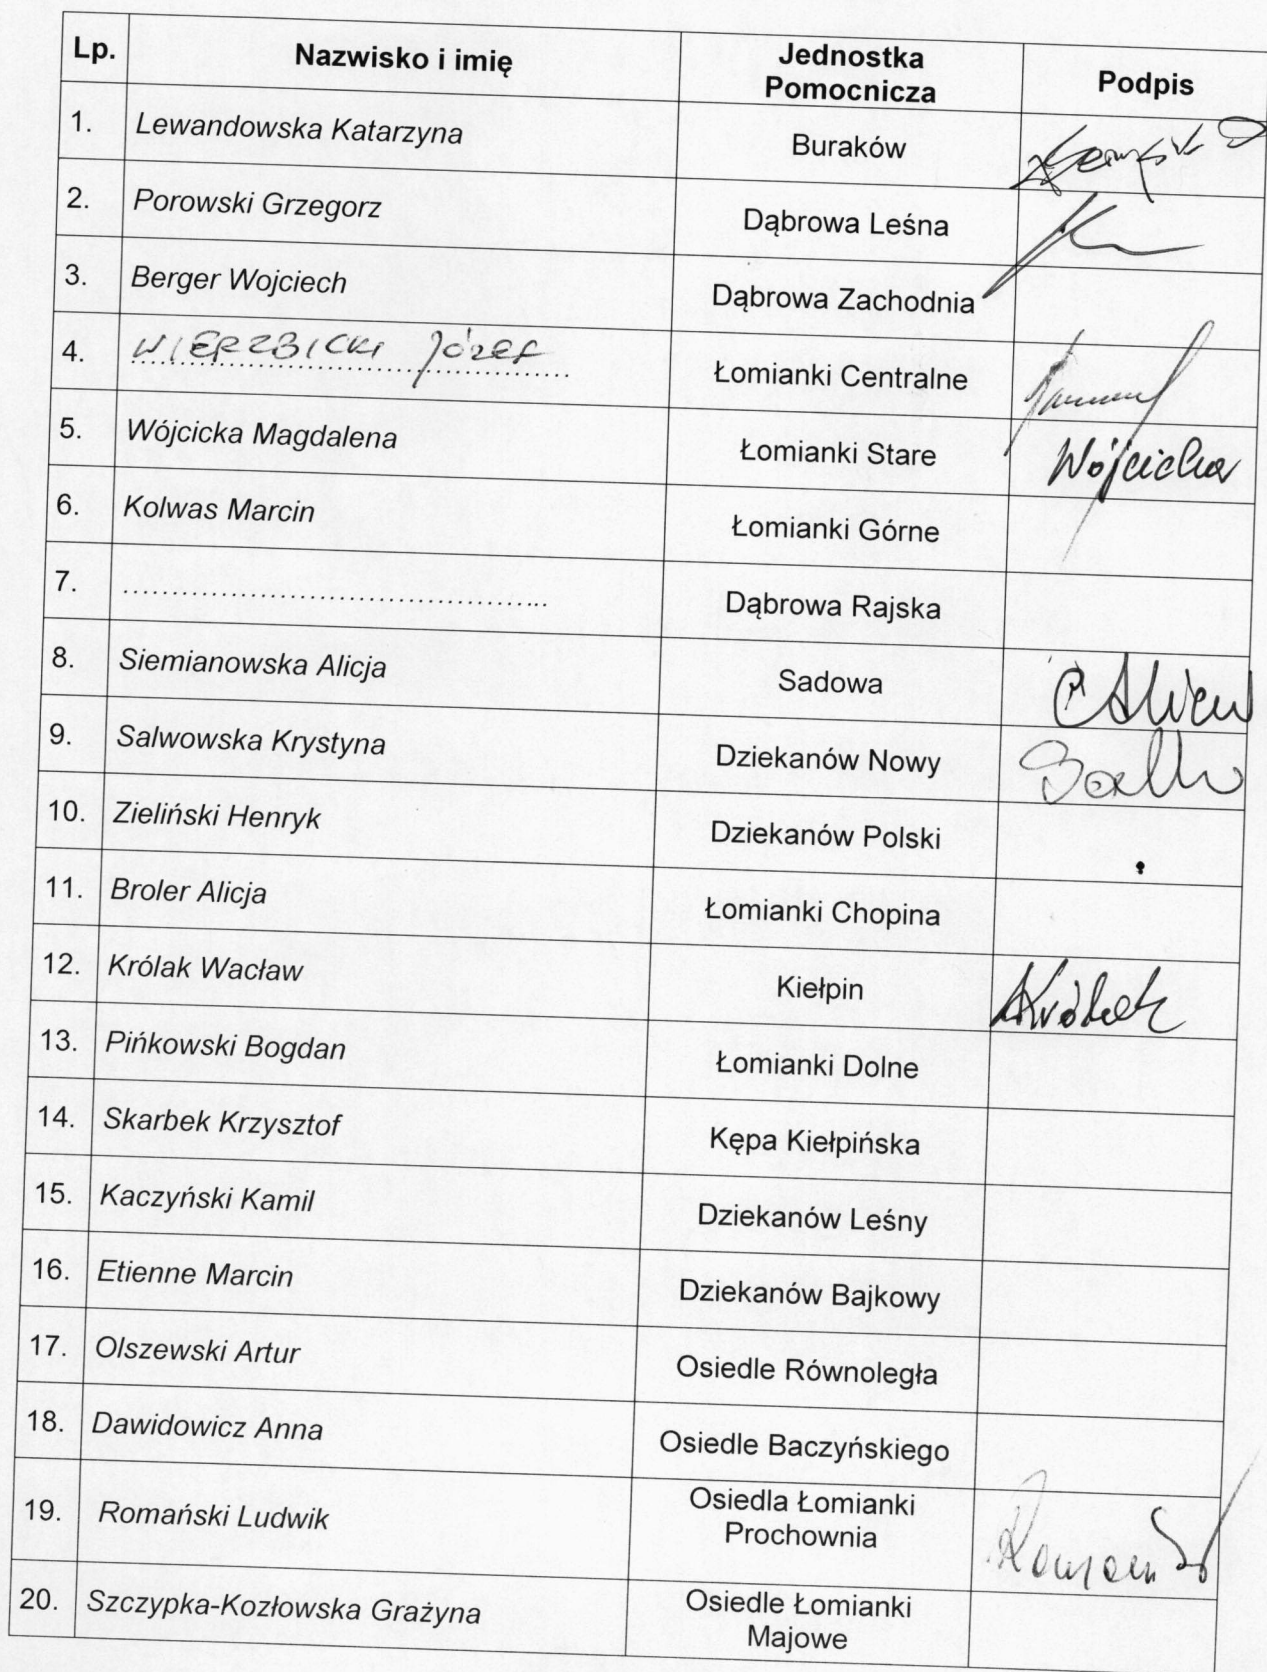 Lp. Nazwisko i imię Jednostka Pomocnicza Podpis
1. Lewandowska Katarzyna Buraków
2. Porowski Grzegorz Dąbrowa Leśna
3. Berger Wojciech Dąbrowa Zachodnia
4. WIERZBICKI Józef Łomianki Centralne
5. Wójcicka Magdalena Łomianki Stare Wójcicka
6. Kolwas Marcin Łomianki Górne
7. ........................................... Dąbrowa Rajska
8. Siemianowska Alicja Sadowa
9. Salwowska Krystyna Dziekanów Nowy
10. Zieliński Henryk Dziekanów Polski
11. Broler Alicja Łomianki Chopina
12. Królak Wacław Kiełpin
13. Pińkowski Bogdan Łomianki Dolne
14. Skarbek Krzysztof Kępa Kiełpińska
15. Kaczyński Kamil Dziekanów Leśny
16. Etienne Marcin Dziekanów Bajkowy
17. Olszewski Artur Osiedle Równoległa
18. Dawidowicz Anna Osiedle Baczyńskiego
19. Romański Ludwik Osiedla Łomianki Prochownia
20. Szczypka-Kozłowska Grażyna Osiedle Łomianki Majowe